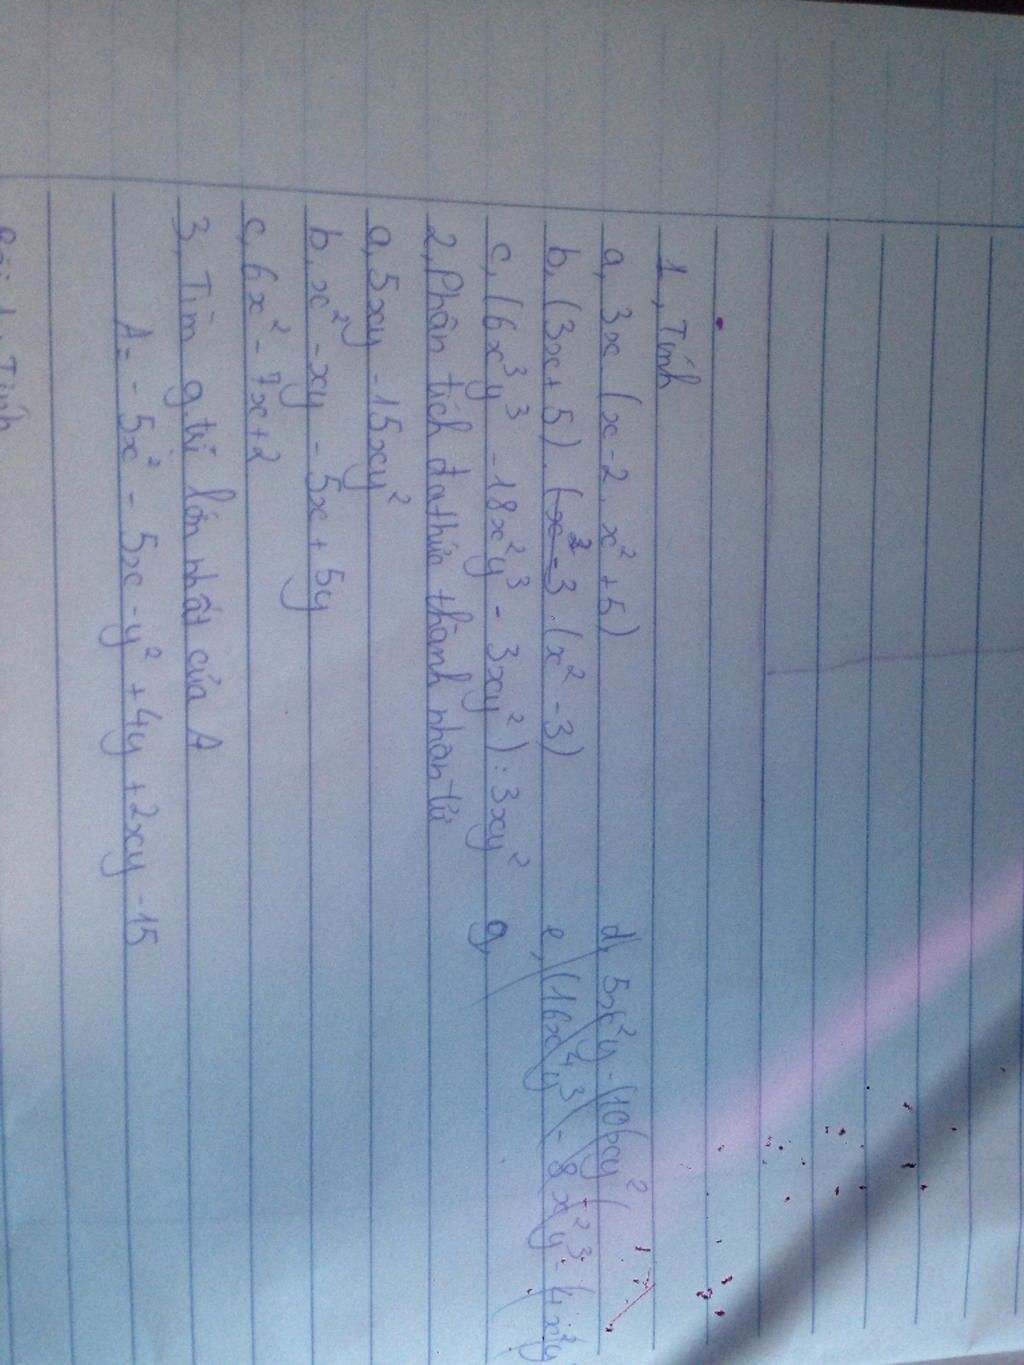 1, Tính
a, 3x (x - 2. x² + 5)
b, (3x + 5). (-x² - 3. (x² - 3)
c, (6x³y³ - 18x²y³ - 3xy²) : 3xy²
d, 5x²y - (10xy² (
e, (16x⁴y³ - 8x²y³ - 4x²y
g,
2, Phân tích đa thức thành nhân tử
a, 5xy - 15xy²
b, x² - xy - 5x + 5y
c, 6x² - 7x + 2
3, Tìm g trị lớn nhất của A
A = - 5x² - 5x - y² + 4y + 2xy - 15
Tính